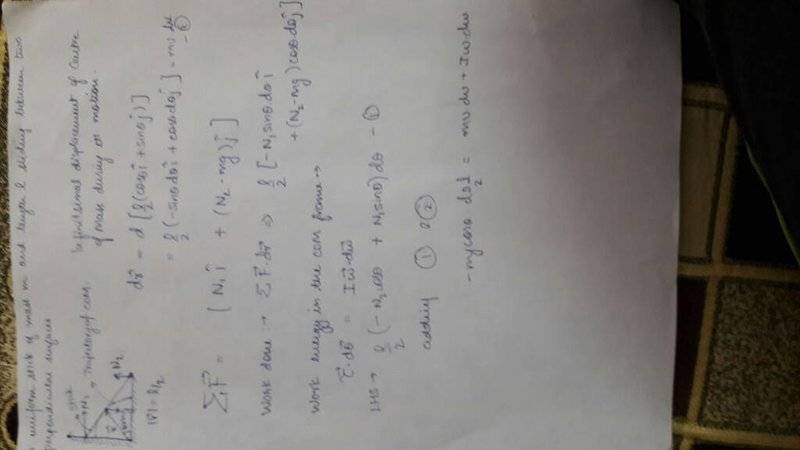 uniform stick of mass m and length l sliding between two
perpendicular surfaces
stick
N₁ → Trajectory of com.
N₂
|r⃗| = l/2
Infinitesimal displacement of centre
of mass during its motion.
dr⃗ = d [l/2 (cosθ î + sinθ ĵ)]
= l/2 (-sinθ dθ î + cosθ dθ ĵ] = mv dv
- ②
ΣF⃗ = [N₁ î + (N₂-mg) ĵ]
Work done → ΣF⃗.dr⃗ ⇒ l/2 [-N₁ sinθ dθ î
+ (N₂-mg) cosθ dθ ĵ]
Work energy in the com frame →
τ⃗.dθ⃗ = Iω⃗.dω⃗
LHS → l/2 (-N₂ cosθ + N₁ sinθ) dθ - ①
adding ① & ②
-mg cosθ dθ l/2 = mv dv + Iω.dω